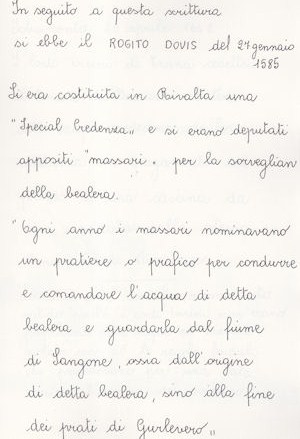 In seguito a questa scrittura
si ebbe il ROGITO DOVIS del 27 gennaio
1585
Si era costituita in Rivalta una
"Special Credenza„ e si erano deputati
appositi "massari. per la sorveglian
della bealera.
"Ogni anno i massari nominavano
un pratiere o prafico per condurre
e comandare l'acqua di detta
bealera e guardarla dal fiume
di Sangone, ossia dall'origine
di detta bealera, sino alla fine
dei prati di Gurlevero„